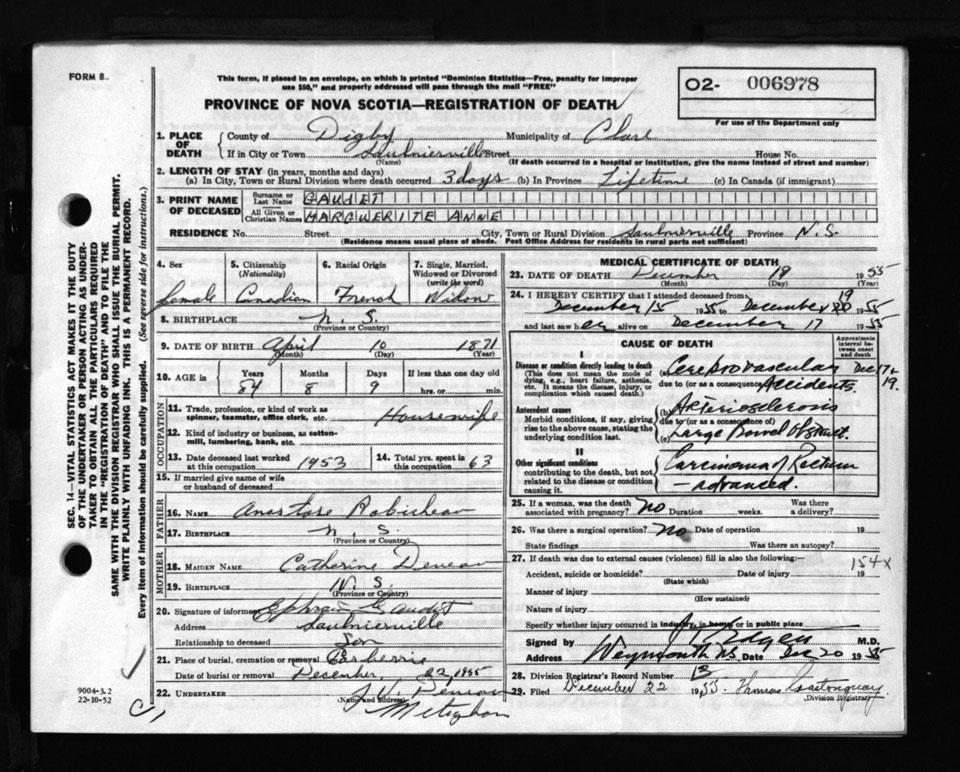 FORM 8.
This form, if placed in an envelope, on which is printed "Dominion Statistics—Free, penalty for improper
use $50," and properly addressed will pass through the mail "FREE"
O2- 006978
For use of the Department only
PROVINCE OF NOVA SCOTIA—REGISTRATION OF DEATH
1. PLACE OF DEATH
County of Digby Municipality of Clare
If in City or Town Saulnierville Street House No.
(Name) (If death occurred in a hospital or institution, give the name instead of street and number)
2. LENGTH OF STAY (in years, months and days)
(a) In City, Town or Rural Division where death occurred 3 days (b) In Province Lifetime (c) In Canada (if immigrant)
3. PRINT NAME OF DECEASED
Surname or Last Name GAUDET
All Given or Christian Names MARGUERITE ANNE
RESIDENCE No. Street City, Town or Rural Division Saulnierville Province N.S.
(Residence means usual place of abode. Post Office Address for residents in rural parts not sufficient)
4. Sex
female
5. Citizenship (Nationality)
Canadian
6. Racial Origin
French
7. Single, Married, Widowed or Divorced (write the word)
Widow
8. BIRTHPLACE N.S.
(Province or Country)
9. DATE OF BIRTH April 10 1871
(Month) (Day) (Year)
10. AGE in
Years Months Days If less than one day old
84 8 9 hrs. or min.
OCCUPATION
11. Trade, profession, or kind of work as spinner, teamster, office clerk, etc. Housewife
12. Kind of industry or business, as cotton-mill, lumbering, bank, etc.
13. Date deceased last worked at this occupation 1953
14. Total yrs. spent in this occupation 63
15. If married give name of wife or husband of deceased
FATHER
16. NAME Anastase Robicheau
17. BIRTHPLACE N.S.
(Province or Country)
MOTHER
18. MAIDEN NAME Catherine Deveau
19. BIRTHPLACE N.S.
(Province or Country)
20. Signature of informant Ephraim Gaudet
Address Saulnierville
Relationship to deceased Son
21. Place of burial, cremation or removal
Date of burial or removal December, 22, 1955
22. UNDERTAKER Meteghan
(Name and address)
MEDICAL CERTIFICATE OF DEATH
23. DATE OF DEATH December 19 1955
(Month) (Day) (Year)
24. I HEREBY CERTIFY that I attended deceased from
December 15 1955 to December 19 1955
and last saw her alive on December 17 1955
CAUSE OF DEATH
Approximate interval between onset and death
I
Disease or condition directly leading to death
(This does not mean the mode of dying, e.g., heart failure, asthenia, etc. It means the disease, injury, or complication which caused death.)
(a) Cerebrovascular
due to (or as a consequence of) Accidents
Dec 17-19.
Antecedent causes
Morbid conditions, if any, giving rise to the above cause, stating the underlying condition last.
(b) Arteriosclerosis
due to (or as a consequence of)
(c) Large Bowel Obstruct.
II
Other significant conditions
contributing to the death, but not related to the disease or condition causing it.
Carcinoma of Rectum
– advanced.
25. If a woman, was the death associated with pregnancy? No Duration weeks. Was there a delivery?
26. Was there a surgical operation? No Date of operation 19
State findings Was there an autopsy?
27. If death was due to external causes (violence) fill in also the following:—
154X
Accident, suicide or homicide? Date of injury 19
(State which)
Manner of injury
(How sustained)
Nature of injury
Specify whether injury occurred in industry, in home or in public place
Signed by M.D.
Address Weymouth N.S. Date Dec 20 1955
28. Division Registrar's Record Number 13
29. Filed December 22 1955 Thomas
(Division Registrar)
SEC. 14—VITAL STATISTICS ACT MAKES IT THE DUTY
OF THE UNDERTAKER OR PERSON ACTING AS UNDER-
TAKER TO OBTAIN ALL THE PARTICULARS REQUIRED
IN THE "REGISTRATION OF DEATH" AND TO FILE THE
SAME WITH THE DIVISION REGISTRAR WHO SHALL ISSUE THE BURIAL PERMIT.
WRITE PLAINLY WITH UNFADING INK. THIS IS A PERMANENT RECORD.
Every item of information should be carefully supplied. (See reverse side for instructions.)
9004-3.2
22-10-52